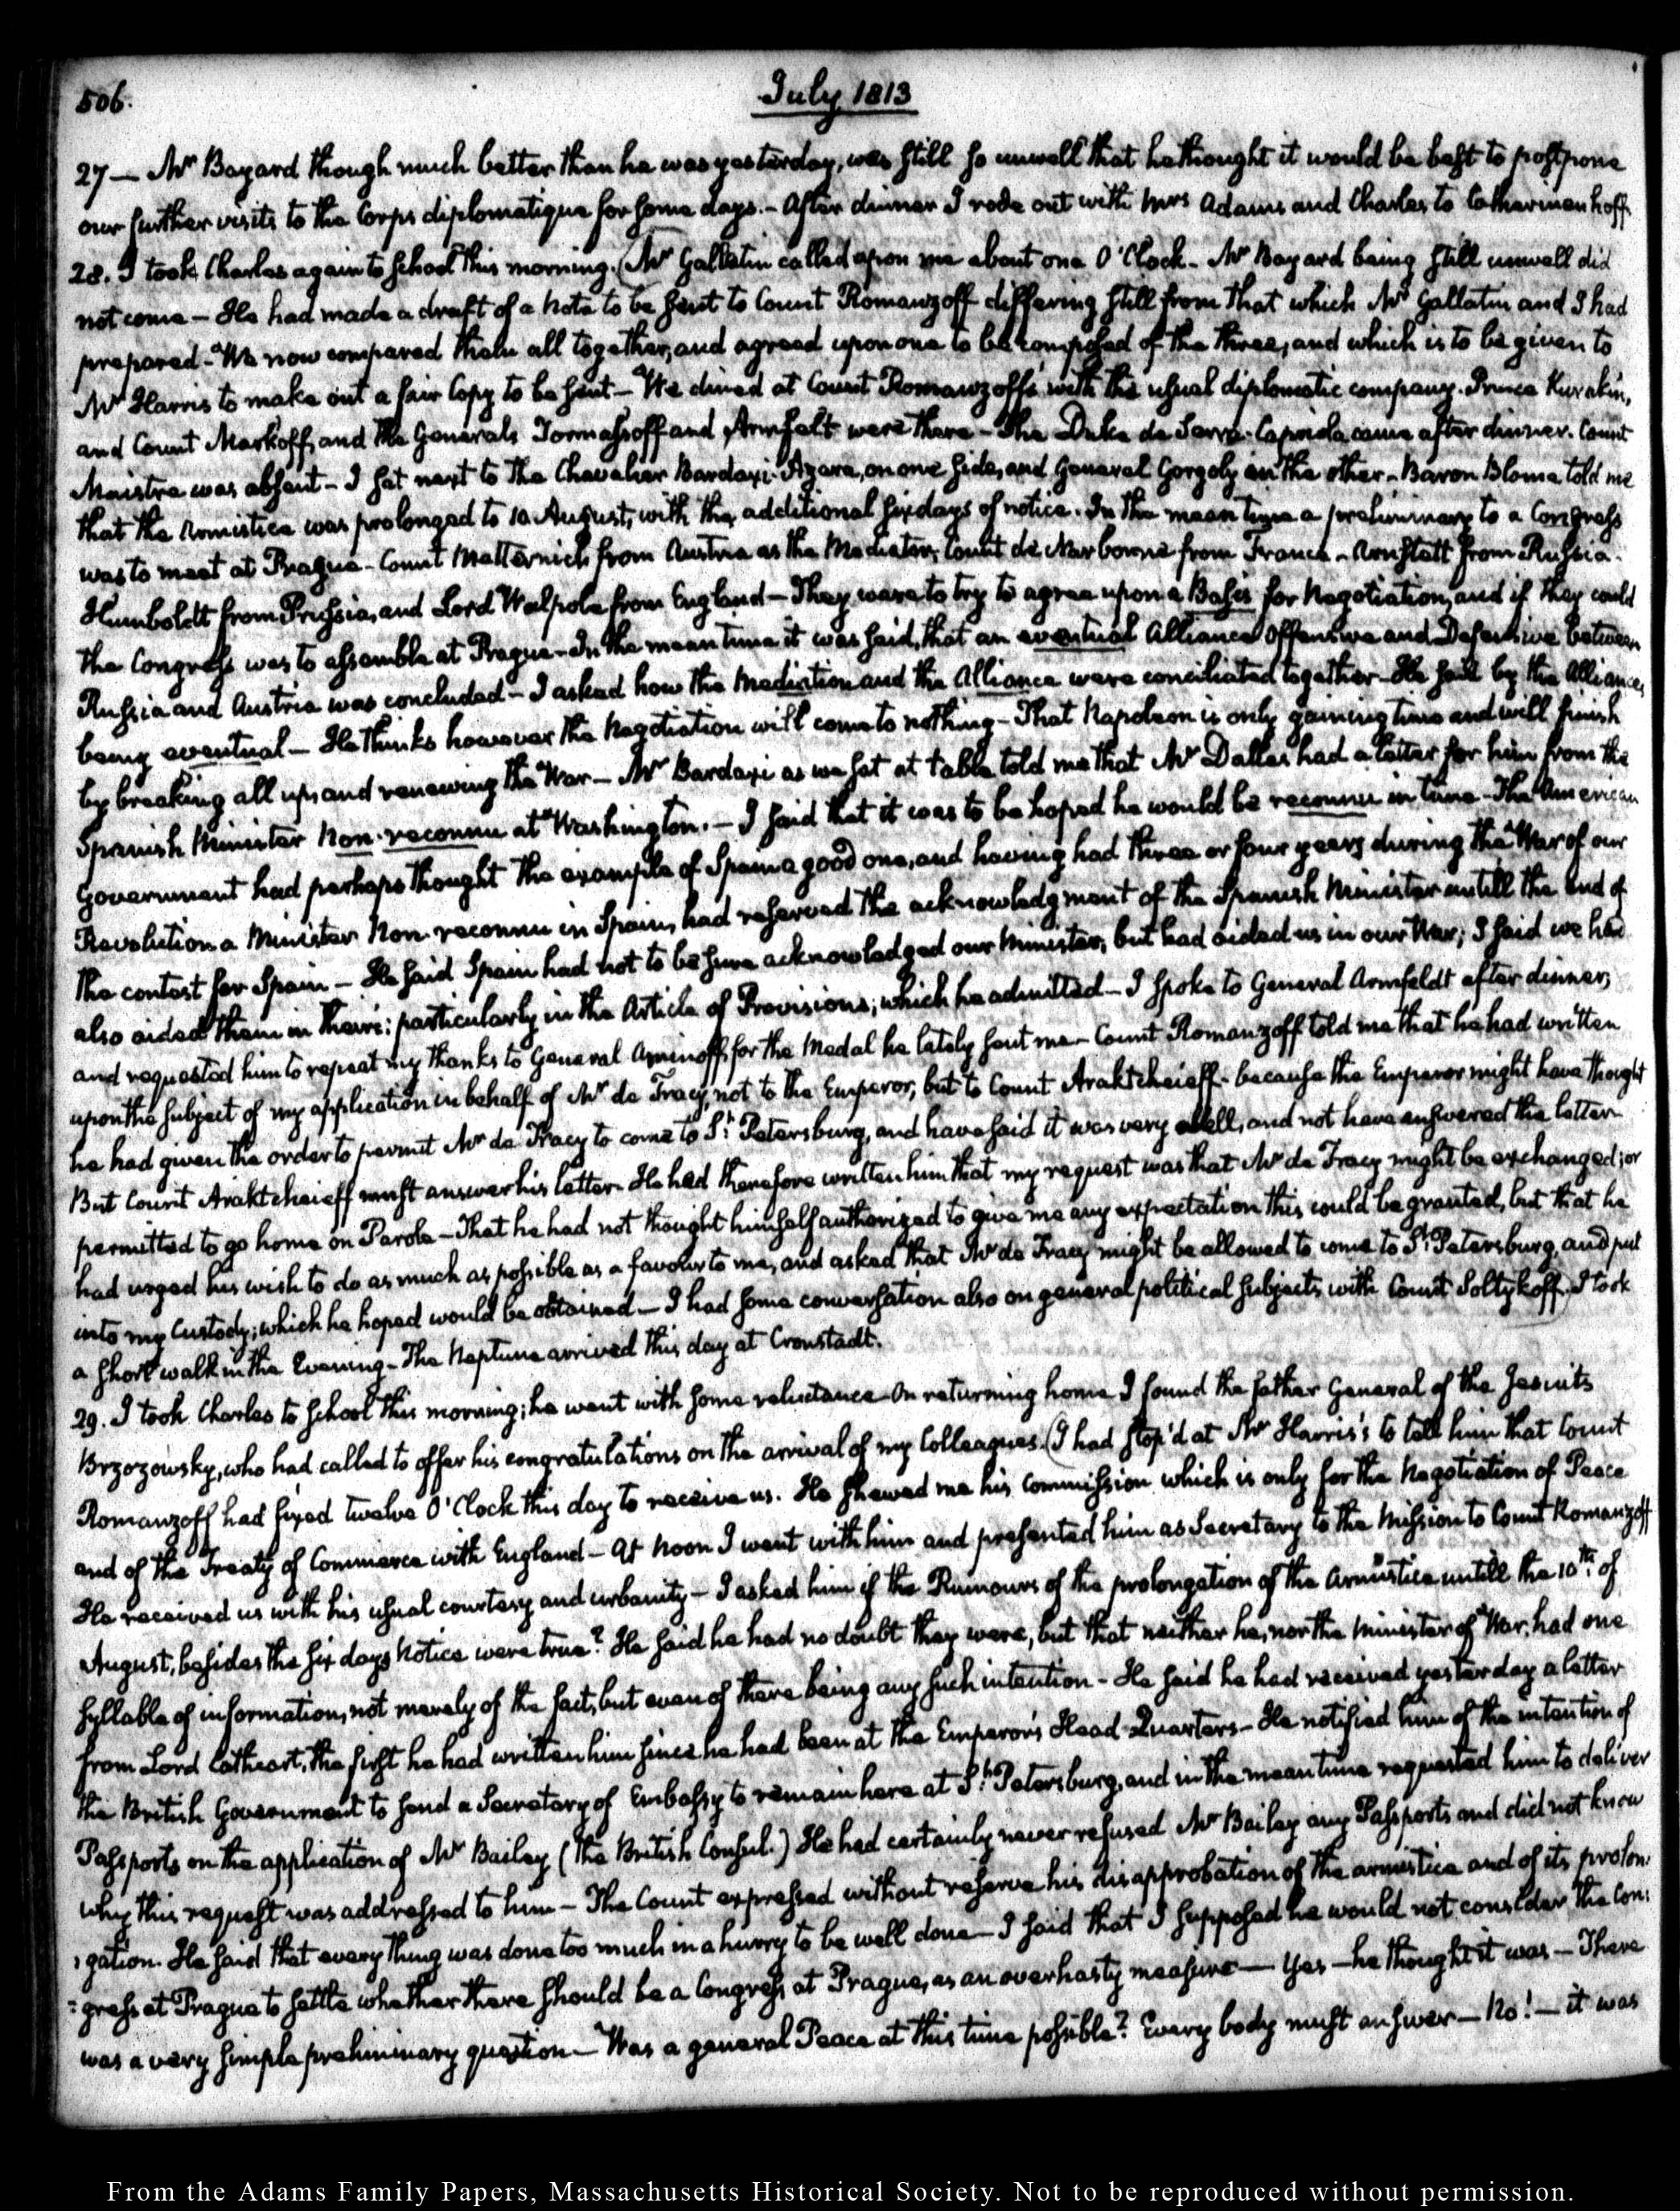 506.
July 1813
27 — Mr Bayard though much better than he was yesterday, was still so unwell that he thought it would be best to postpone
our further visits to the Corps diplomatique for some days. – After dinner I rode out with Mrs Adams and Charles to Catherinenhoff
28. I took Charles again to School this morning. (Mr Gallatin called upon me about one O'Clock – Mr Bayard being still unwell did
not come – He had made a draft of a Note to be sent to Count Romanzoff differing still from that which Mr Gallatin and I had
prepared – We now compared them all together, and agreed upon one to be composed of the three, and which is to be given to
Mr Harris to make out a fair Copy to be sent – We dined at Count Romanzoff's with the usual diplomatic company. Prince Kurakin,
and Count Markoff, and the Generals Tormassoff and Armfelt were there – The Duke de Serra-Capriola came after dinner. Count
Maistre was absent – I sat next to the Chevalier Bardaxi-Azara, on one side, and General Gorgoly on the other – Baron Blome told me
that the Armistice was prolonged to 10 August, with the additional six days of notice. In the mean time a preliminary to a Congress
was to meet at Prague – Count Metternich from Austria as the Mediator, Count de Narbonne from France – Anstett from Russia.
Humboldt from Prussia, and Lord Walpole from England – They were to try to agree upon a Basis for Negotiation, and if they could
the Congress was to assemble at Prague – In the mean time it was said, that an eventual Alliance Offensive and Defensive between
Russia and Austria was concluded – I asked how the Mediation and the Alliance were conciliated together – He said by the Alliance,
being eventual – He thinks however the Negotiation will come to nothing – That Napoleon is only gaining time and will finish
by breaking all up, and renewing the War – Mr Bardaxi as we sat at table told me that Mr Dallas had a letter for him from the
Spanish Minister Non-reconnu at Washington. – I said that it was to be hoped he would be reconnu in time – The American
Government had perhaps thought the example of Spain a good one, and having had three or four years during the War of our
Revolution a Minister Non-reconnu in Spain, had reserved the acknowledgment of the Spanish Minister untill the end of
the contest for Spain – He said Spain had not to be sure acknowledged our Minister, but had aided us in our War; I said we had
also aided them in theirs; particularly in the Article of Provisions; which he admitted – I spoke to General Armfeldt after dinner;
and requested him to repeat my thanks to General Aminoff, for the Medal he lately sent me – Count Romanzoff told me that he had written
upon the subject of my application in behalf of Mr de Tracy, not to the Emperor, but to Count Araktcheieff – because the Emperor might have thought
he had given the order to permit Mr de Tracy to come to St Petersburg, and have said it was very well, and not have answered the letter
But Count Araktcheieff must answer his letter – He had therefore written him that my request was that Mr de Tracy might be exchanged; or
permitted to go home on Parole – That he had not thought himself authorized to give me any expectation this could be granted, but that he
had urged his wish to do as much as possible as a favour to me, and asked that Mr de Tracy might be allowed to come to St Petersburg, and put
into my Custody; which he hoped would be obtained – I had some conversation also on general political subjects with Count Soltykoff. I took
a short walk in the Evening – The Neptune arrived this day at Cronstadt.
29. I took Charles to School this morning; he went with some reluctance – On returning home I found the father General of the Jesuits
Brzozowsky, who had called to offer his congratulations on the arrival of my Colleagues. (I had stop'd at Mr Harris's to tell him that Count
Romanzoff had fixed twelve O'Clock this day to receive us. He shewed me his Commission which is only for the Negotiation of Peace
and of the Treaty of Commerce with England – At Noon I went with him and presented him as Secretary to the Mission to Count Romanzoff
He received us with his usual courtesy and urbanity – I asked him if the Rumours of the prolongation of the Armistice untill the 10th. of
August, besides the six days Notice were true? He said he had no doubt they were, but that neither he, nor the Minister of War, had one
syllable of information, not merely of the fact, but even of there being any such intention – He said he had received yesterday a letter
from Lord Cathcart, the first he had written him since he had been at the Emperor's Head-Quarters – He notified him of the intention of
the British Government to send a Secretary of Embassy to remain here at St Petersburg, and in the mean time requested him to deliver
Passports on the application of Mr Bailey (the British Consul.) He had certainly never refused Mr Bailey any Passports and did not know
why this request was addressed to him – The Count expressed without reserve his disapprobation of the armistice and of its prolon:
:gation. He said that every thing was done too much in a hurry to be well done – I said that I supposed he would not consider the Con:
:gress at Prague to settle whether there should be a Congress at Prague, as an overhasty measure — Yes – he thought it was – There
was a very simple preliminary question – Was a general Peace at this time possible? Every body must answer – No! – it was
From the Adams Family Papers, Massachusetts Historical Society. Not to be reproduced without permission.